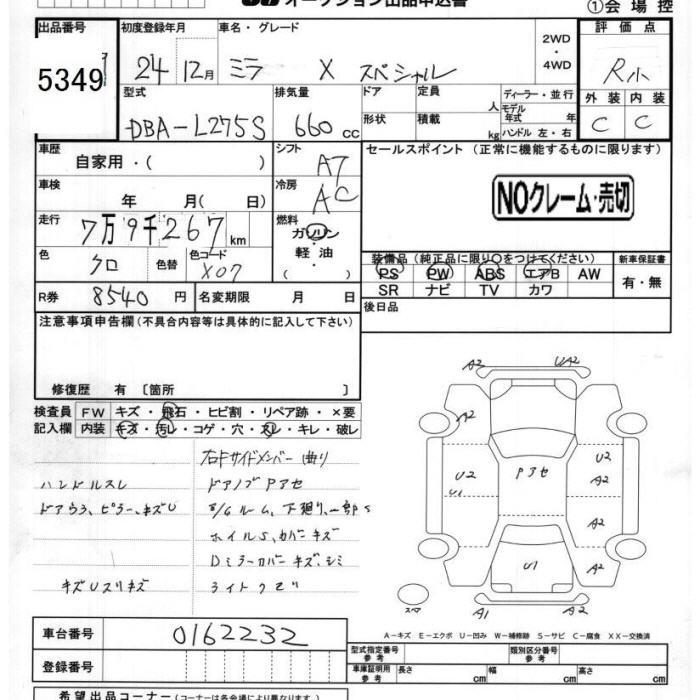 オークション出品申込書
①会場控
出品番号 初度登録年月 車名・グレード 評価点
5349 24 12月 ミラ X スペシャル 2WD・4WD R小
型式 排気量 ドア 定員 ディーラー・並行 外装 内装
DBA-L275S 660cc 形状 積載 人 kg モデル年式 年 ハンドル 左・右 C C
車歴 自家用・( ) シフト AT セールスポイント (正常に機能するものに限ります)
車検 年 月( 日) 冷房 AC
NOクレーム・売切
走行 7万9千267km 燃料 ガソリン・軽油・( )
色 クロ 色替 色コード X07
装備品(純正品に限り○をつけてください) 新車保証書
PS PW ABS エアB AW 有・無
SR ナビ TV カワ
R券 8540円 名変期限 月 日 後日品
注意事項申告欄(不具合内容等は具体的に記入して下さい)
修復歴 有 〔箇所 〕
検査員 FW キズ・飛石・ヒビ割・リペア跡・×要
記入欄 内装 キズ・汚レ・コゲ・穴・スレ・キレ・破レ
右Fサイドメンバー曲り
ハンドルスレ ドアノブPアセ
ドアウラ、ピラー、キズU ルーム、下廻り、一部S
ホイルS、カバーキズ
Dミラーカバーキズ、シミ
キズUスリキズ ライトクモリ
A2 UA2
A2
U2 Pアセ U2
U1 A2
A2
U1 A2
スペア A1 A2
A-キズ E-エクボ U-凹み W-補修跡 S-サビ C-腐食 XX-交換済
車台番号 0162232
登録番号
型式指定番号 参考 類別区分番号 参考
車庫証明用 参考 長さ cm 幅 cm 高さ cm
希望出品コーナー(コーナーは各会場により異なります。)